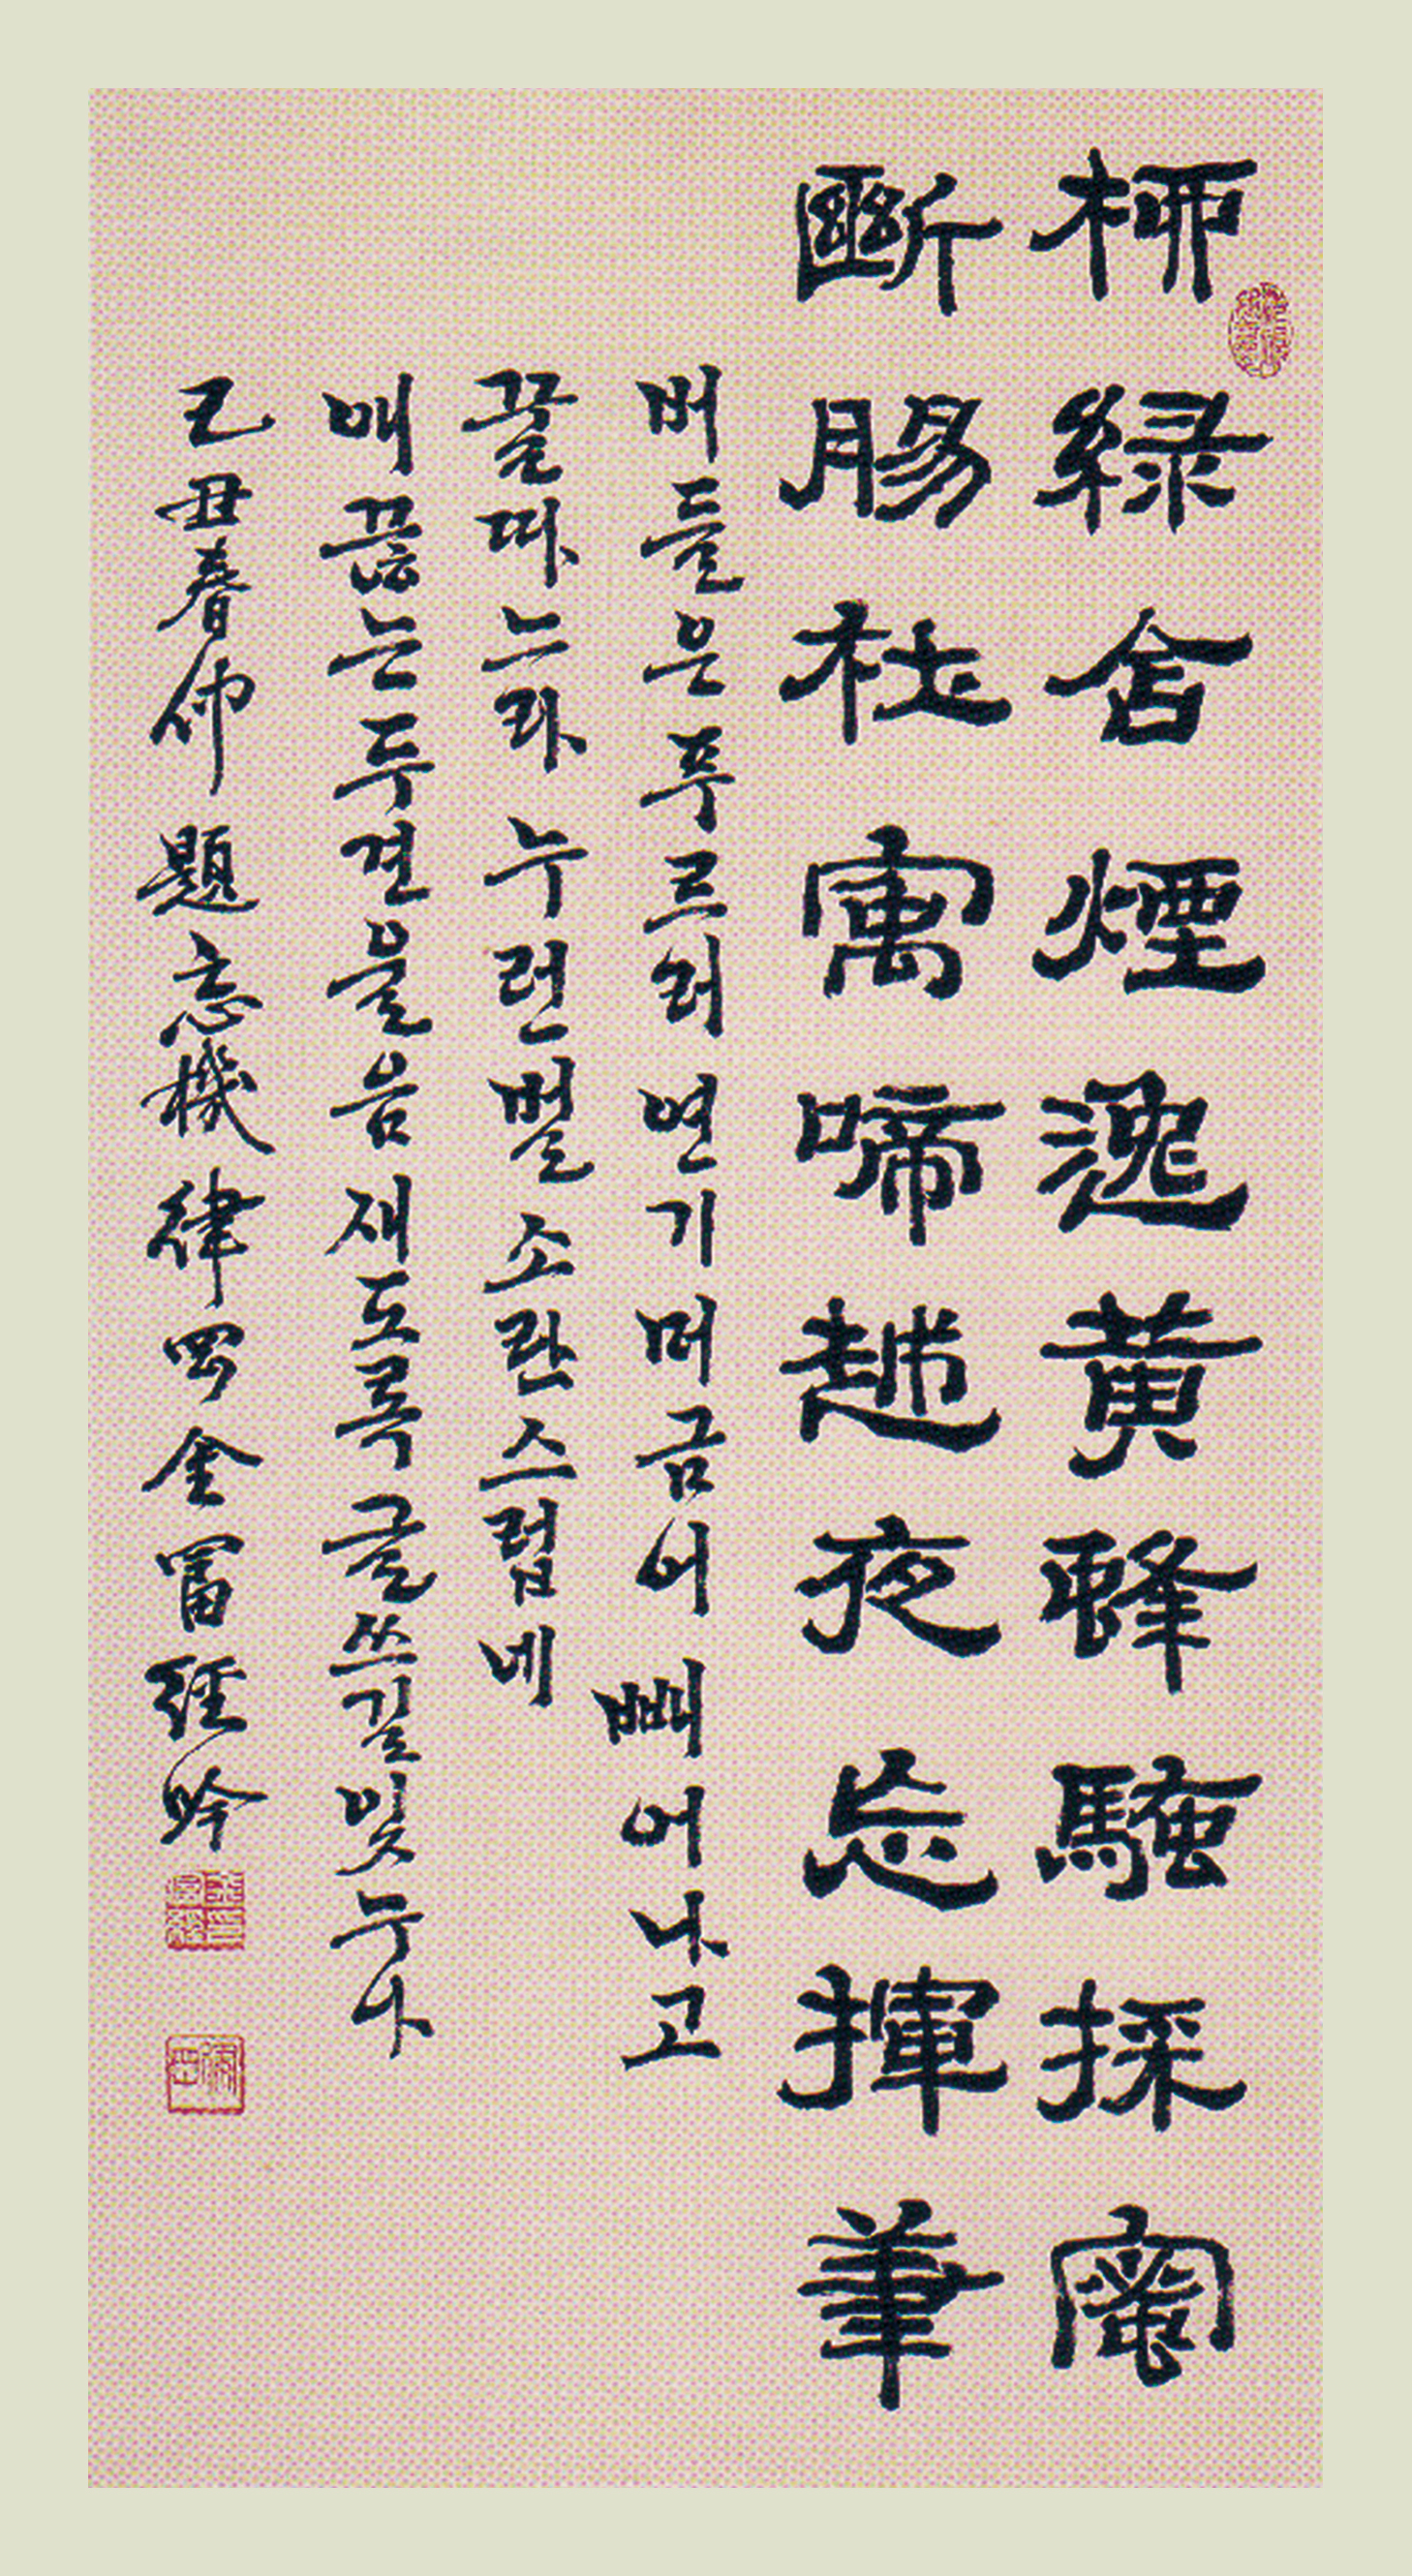 柳綠含煙逸黃蜂騷採蜜
斷腸杜㝢啼越夜忘揮筆
버들은 푸르러 연기 머금어 빼어나고
꿀 따느라 누런 벌 소란스럽네
애끊는 두견 울음 재도록 글쓰길 잊누나
己丑春 題忘機 律 金富經吟